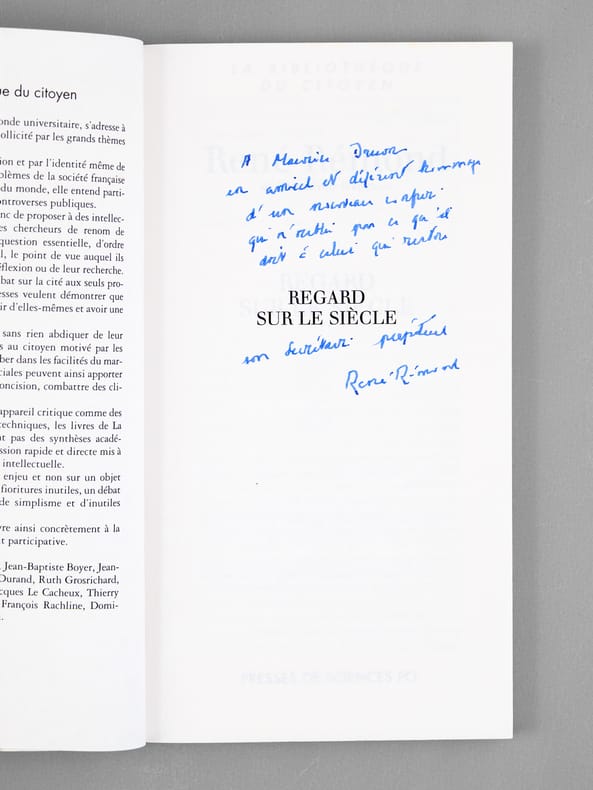 ue du citoyen
onde universitaire, s'adresse à
ollicité par les grands thèmes
ion et par l'identité même de
blèmes de la société française
du monde, elle entend parti-
ontroverses publiques.
nc de proposer à des intellec-
es chercheurs de renom de
question essentielle, d'ordre
l, le point de vue auquel ils
éflexion ou de leur recherche.
bat sur la cité aux seuls pro-
esses veulent démontrer que
ir d'elles-mêmes et avoir une
sans rien abdiquer de leur
s au citoyen motivé par les
ber dans les facilités du mar-
ciales peuvent ainsi apporter
oncision, combattre des cli-
appareil critique comme des
techniques, les livres de La
nt pas des synthèses acadé-
ssion rapide et directe mis à
intellectuelle.
enjeu et non sur un objet
fioritures inutiles, un débat
de simplisme et d'inutiles
vre ainsi concrètement à la
t participative.
, Jean-Baptiste Boyer, Jean-
Durand, Ruth Grosrichard,
cques Le Cacheux, Thierry
François Rachline, Domi-
.
LA BIBLIOTHÈQUE
DU CITOYEN
René Rémond
A Maurice Druon
en amical et déférent hommage
d'un nouveau confrère
qui n'oublie pas ce qu'il
doit à celui qui restera
REGARD
SUR LE SIÈCLE
son Secrétaire perpétuel
René Rémond
PRESSES DE SCIENCES PO